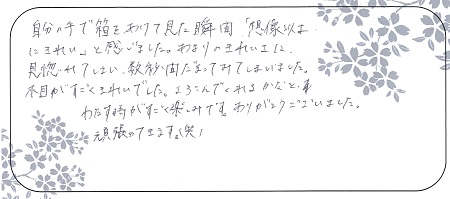 自分の手で箱をあけて見た瞬間「想像以上
にきれい」と感じました。あまりのきれいさに、
見惚れてしまい、数秒間だまってみてしまいました。
木目がすごくきれいでした。よろこんでくれるかなと
わたす時がすごく楽しみです。ありがとうございました。
頑張ってきます。(笑)